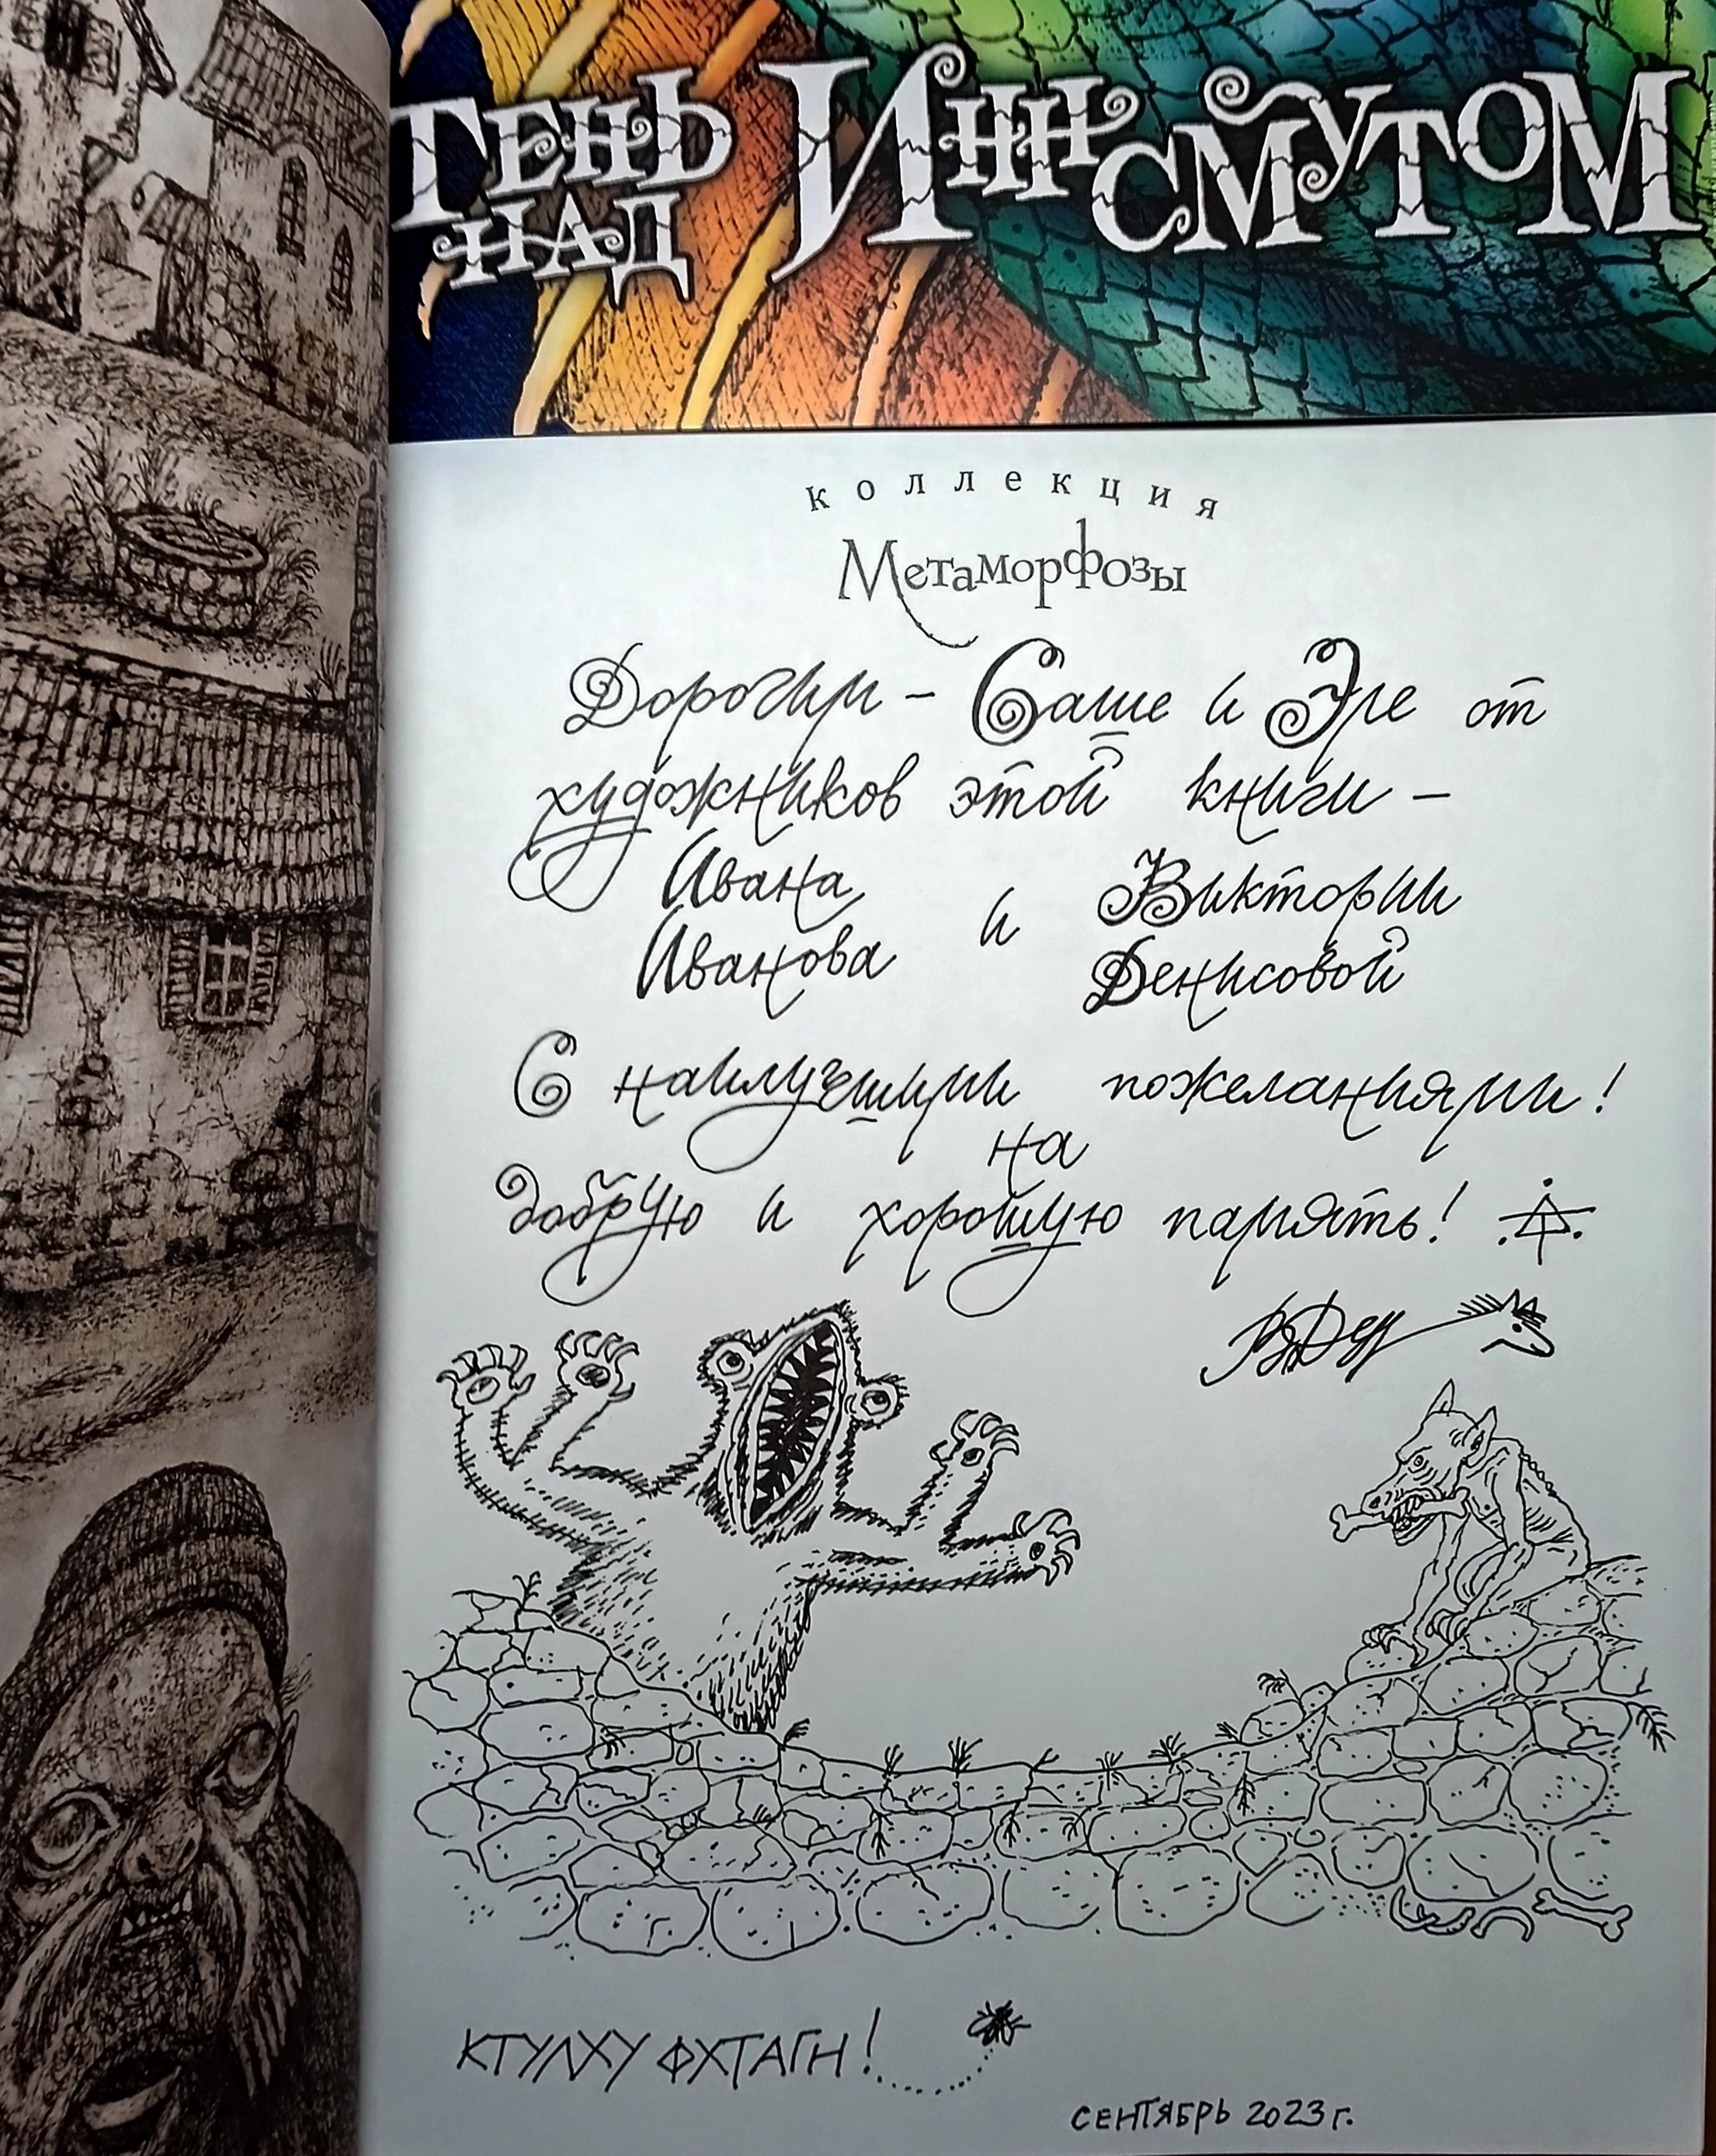 ТЕНЬ
НАД
ИННСМУТОМ
коллекция
Метаморфозы
Дорогим - Саше и Эле от
художников этой книги -
Ивана и Виктории
Иванова Денисовой
С наилучшими пожеланиями!
на
добрую и хорошую память!
КТУЛХУ ФХТАГН!
СЕНТЯБРЬ 2023 г.